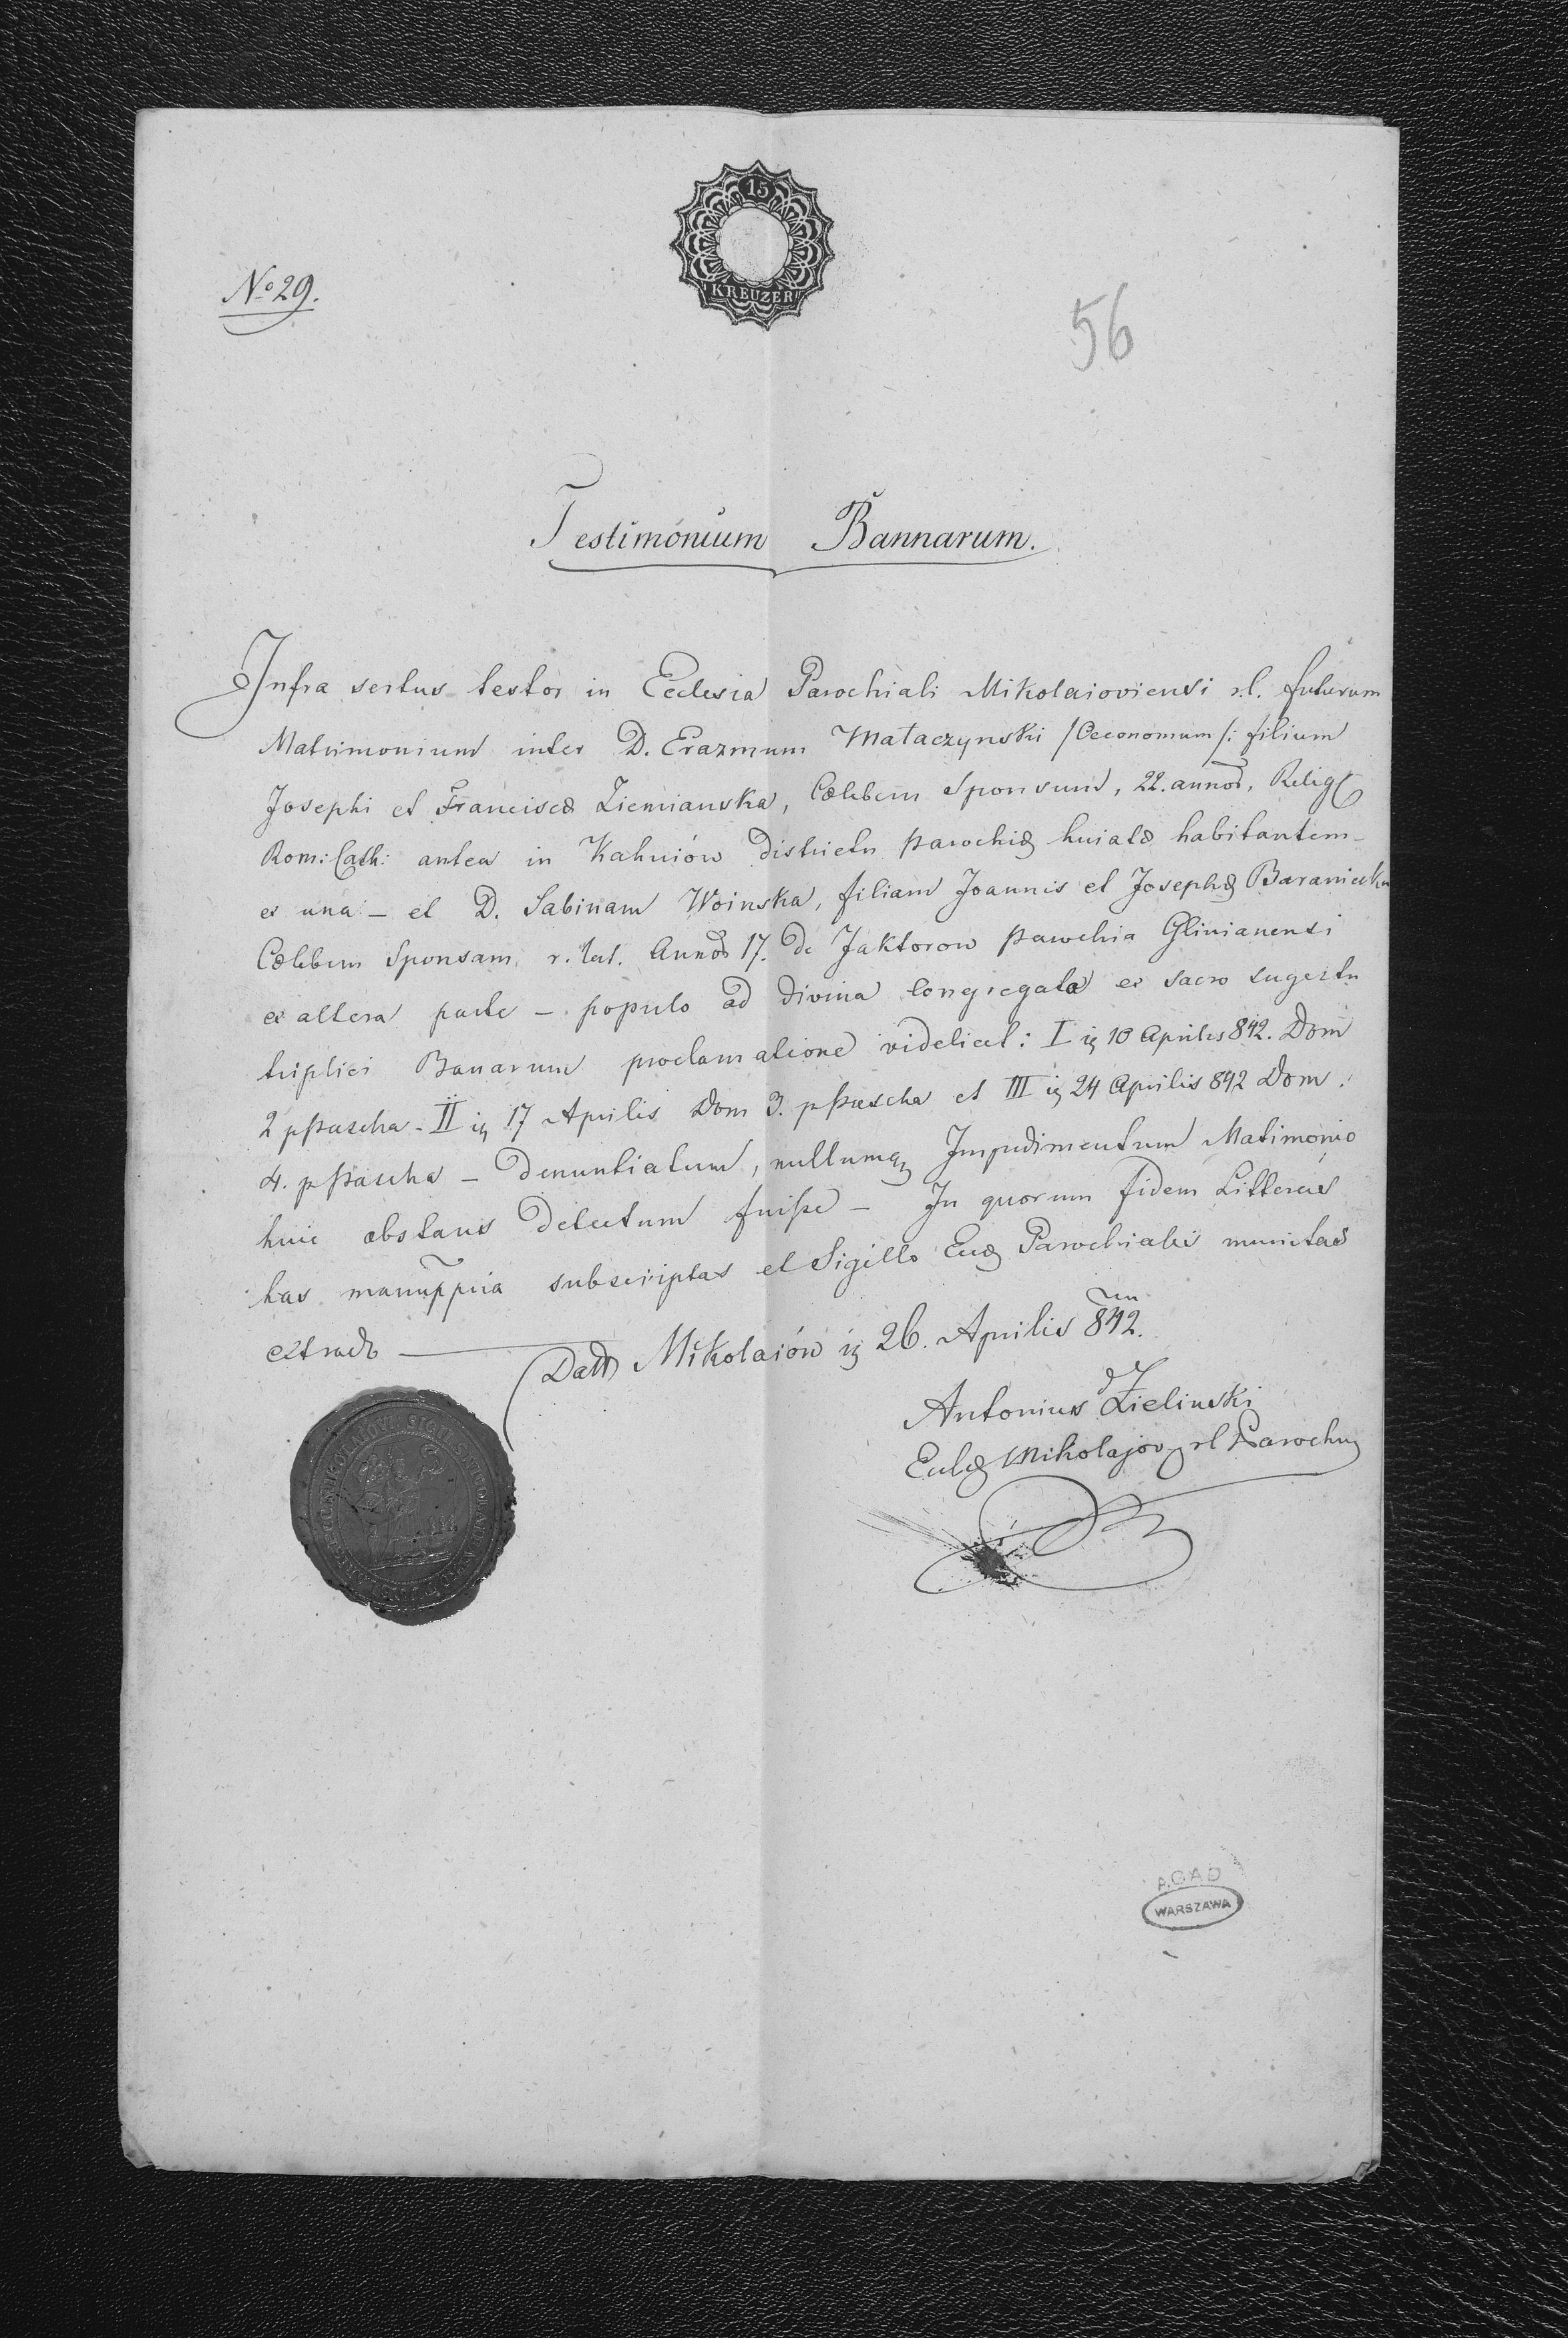 15
KREUZER
No 29.
56
Testimonium Bannarum.
Infra scrtus testor in Ecclesia Parochiali Mikolaioviensi r.l. futurum
Matrimonium inter D. Erazmum Małaczynski /Oeconomum/: filium
Josephi et Franciscæ Ziemianska, Cœlebem Sponsum, 22. annor, Relig
Rom: Cath: antea in Districtu parochiæ huiatæ habitantem
ex una – et D. Sabinam Woinska, filiam Joannis et Josephæ Baraniecka
Cœlebem Sponsam r. lat. Annor 17. de Jaktorow parochia Glinianensi
ex altera parte – populo ad divina congregato ex sacro sugestu
triplici Banarum proclamatione videlicet: I 10 Aprilis 842. Dom
2 p Pascha – II 17 Aprilis Dom 3. p Pascha et III 24 Aprilis 842 Dom.
4. p Pascha – denuntiatum, nullumq Impedimentum Matimonio
huic obstans detectum fuisse – In quorum fidem Litteras
has manuppria subscriptas et Sigillo Parochialis munitas
extrado
Datt Mikolaiów 26. Aprilis 842.
Antonius Zielinski
Mikolajov rl Parochus
AGAD
WARSZAWA